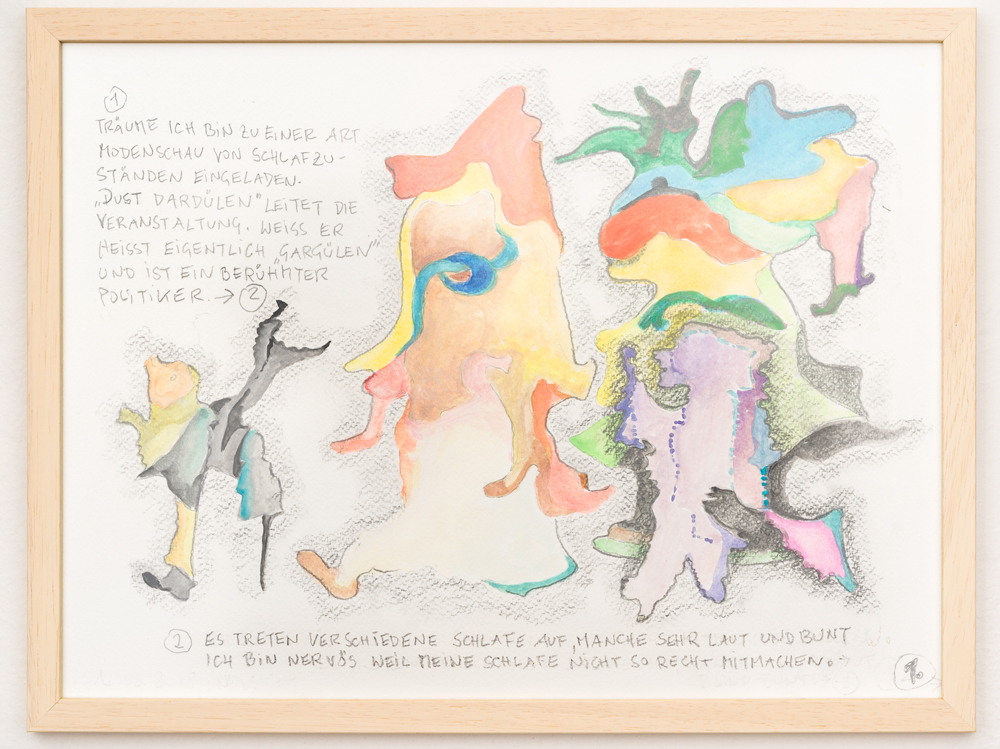 1
TRÄUME ICH BIN ZU EINER ART
MODENSCHAU VON SCHLAFZU-
STÄNDEN EINGELADEN.
„DUST DARDÜLEN" LEITET DIE
VERANSTALTUNG. WEISS ER
HEISST EIGENTLICH „GARGÜLEN"
UND IST EIN BERÜHMTER
POLITIKER. → 2
2 ES TRETEN VERSCHIEDENE SCHLAFE AUF, MANCHE SEHR LAUT UND BUNT
ICH BIN NERVÖS WEIL MEINE SCHLAFE NICHT SO RECHT MITMACHEN. →
1.